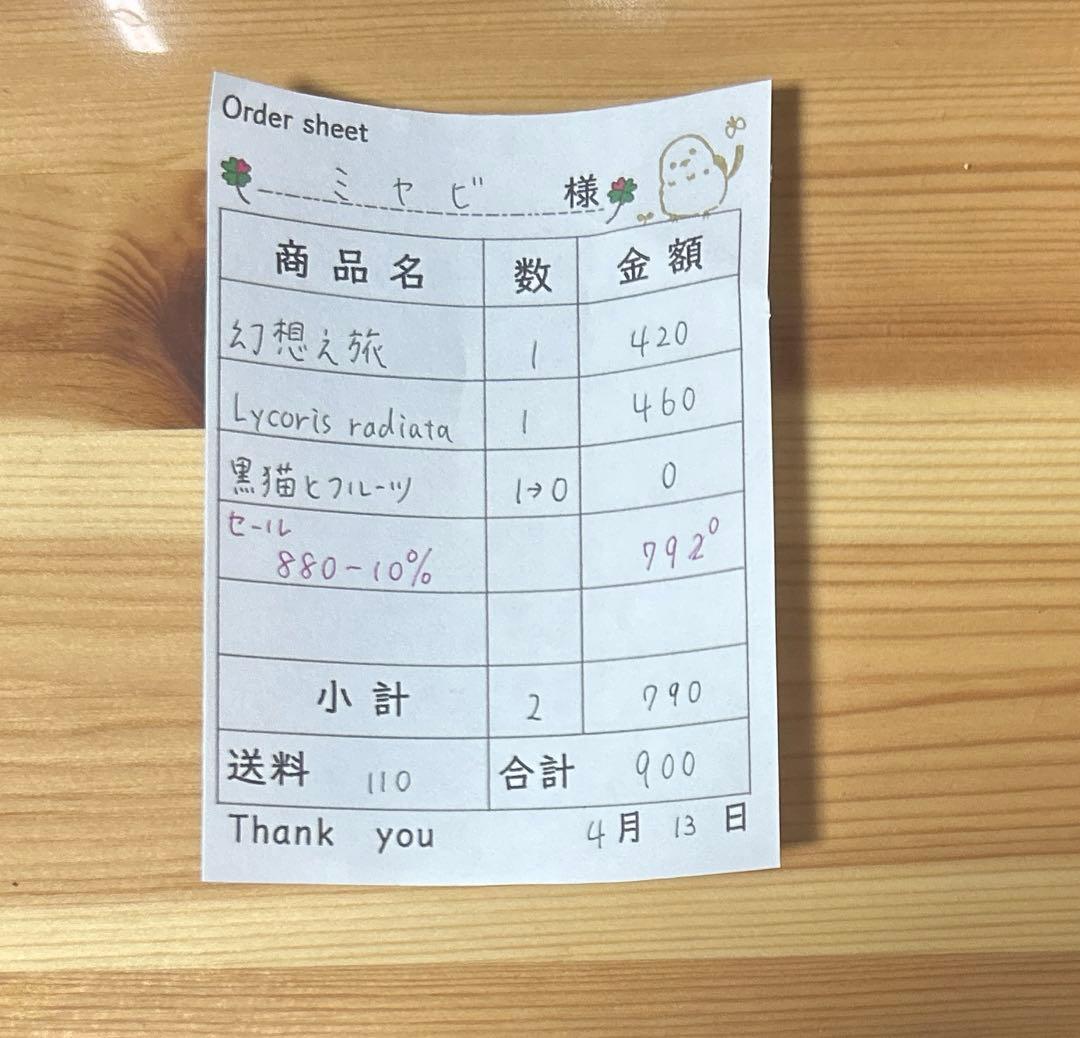 Order sheet
ミヤビ 様
商品名 数 金額
幻想え旅 1 420
Lycoris radiata 1 460
黒猫とフルーツ 1→0 0
セール
880-10% 792⁰
小計 2 790
送料 110 合計 900
Thank you 4月 13日